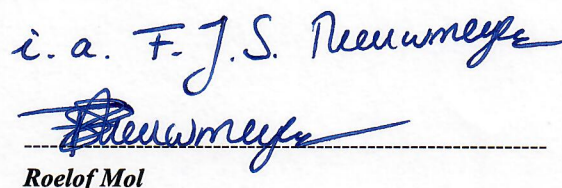 i. a. F. J. S. Nieuwmeyer
Nieuwmeyer
Roelof Mol